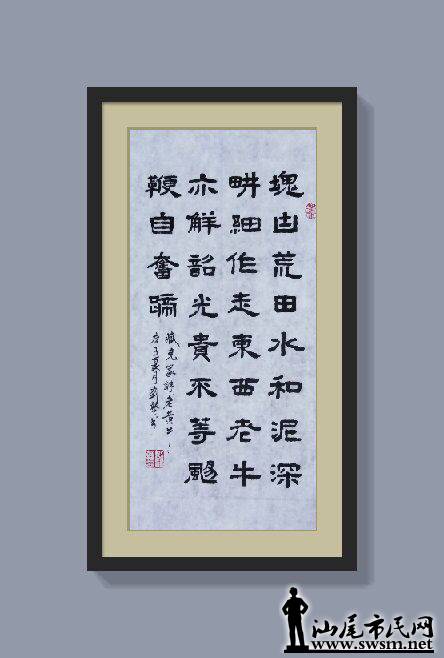 塊凷荒田水和泥深
畊細作走東西老牛
亦解韶光貴不等颺
鞭自奮蹄
臧克家詩老黄牛
庚子夏月劉
汕尾市民网
www.swsm.net